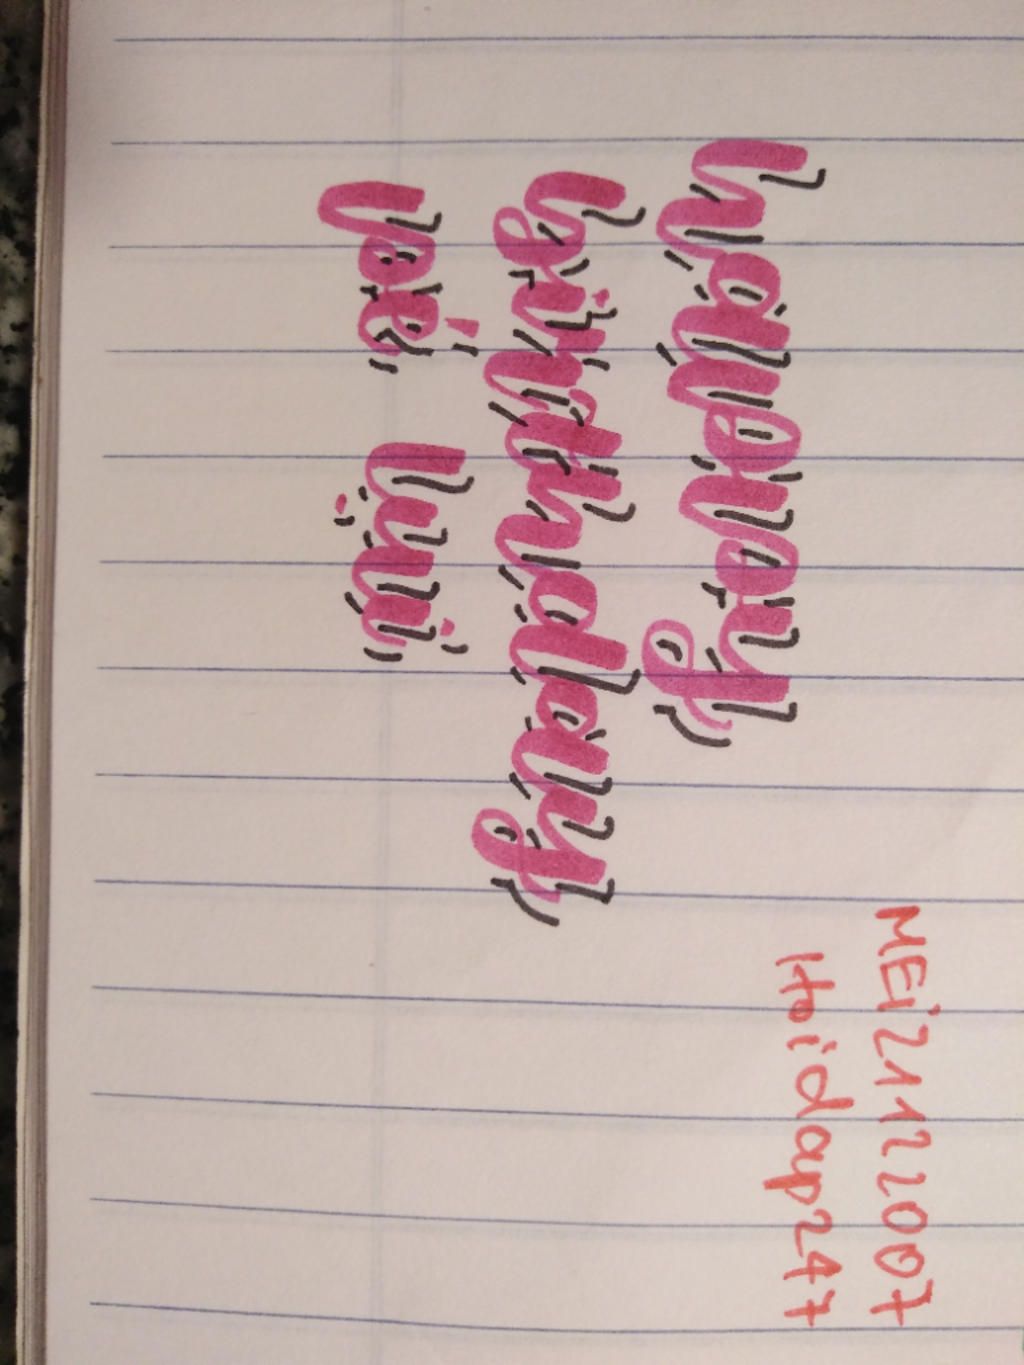 happy
birthday
bé Uni
MEi21122007
Hoidap247